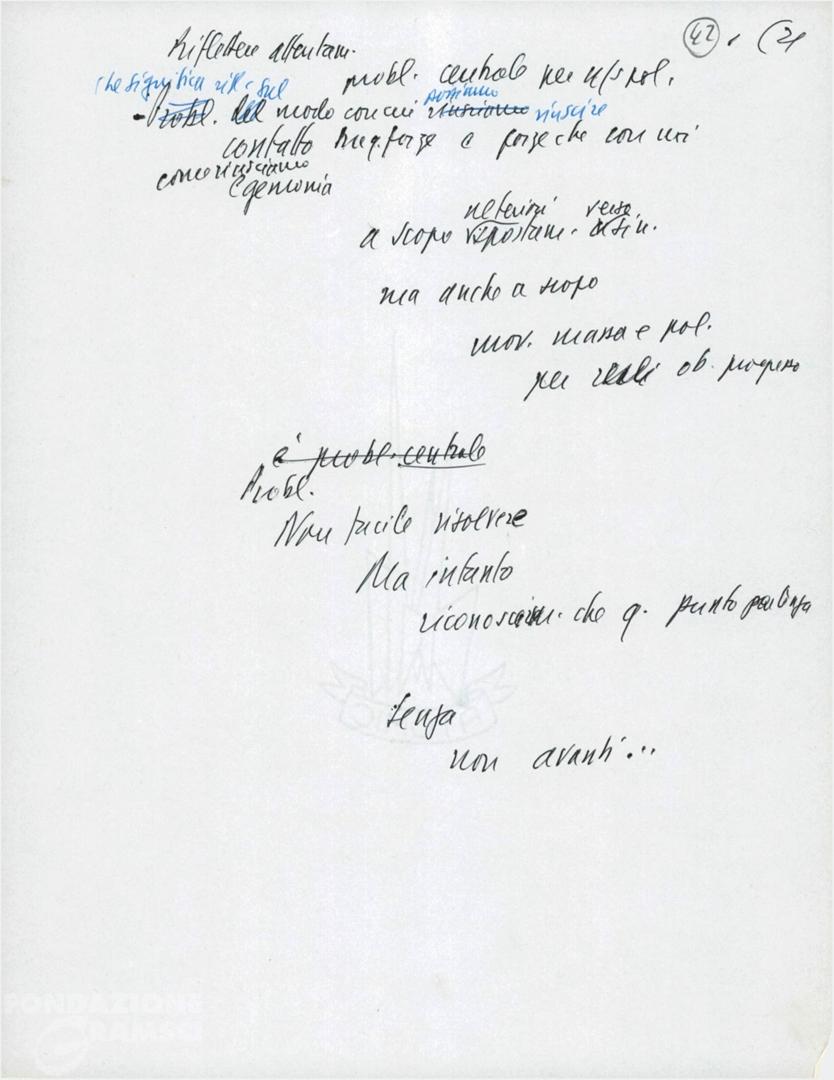 42 (21
Riflettere attentam.
probl. centrale per n/s pol.
che significa rifl. sul
possiamo
- Probl. del modo con cui riusciamo riuscire
contatto forze e forze che con noi
come riusciamo
Egemonia
verso
a scopo spostam. sin.
ma anche a scopo
mov. massa e pol.
per ob. progresso
è probl. centrale
Probl.
Non facile risolvere
Ma intanto
riconosciam. che q. punto partenza
Senza
non avanti...
FONDAZIONE
GRAMSCI